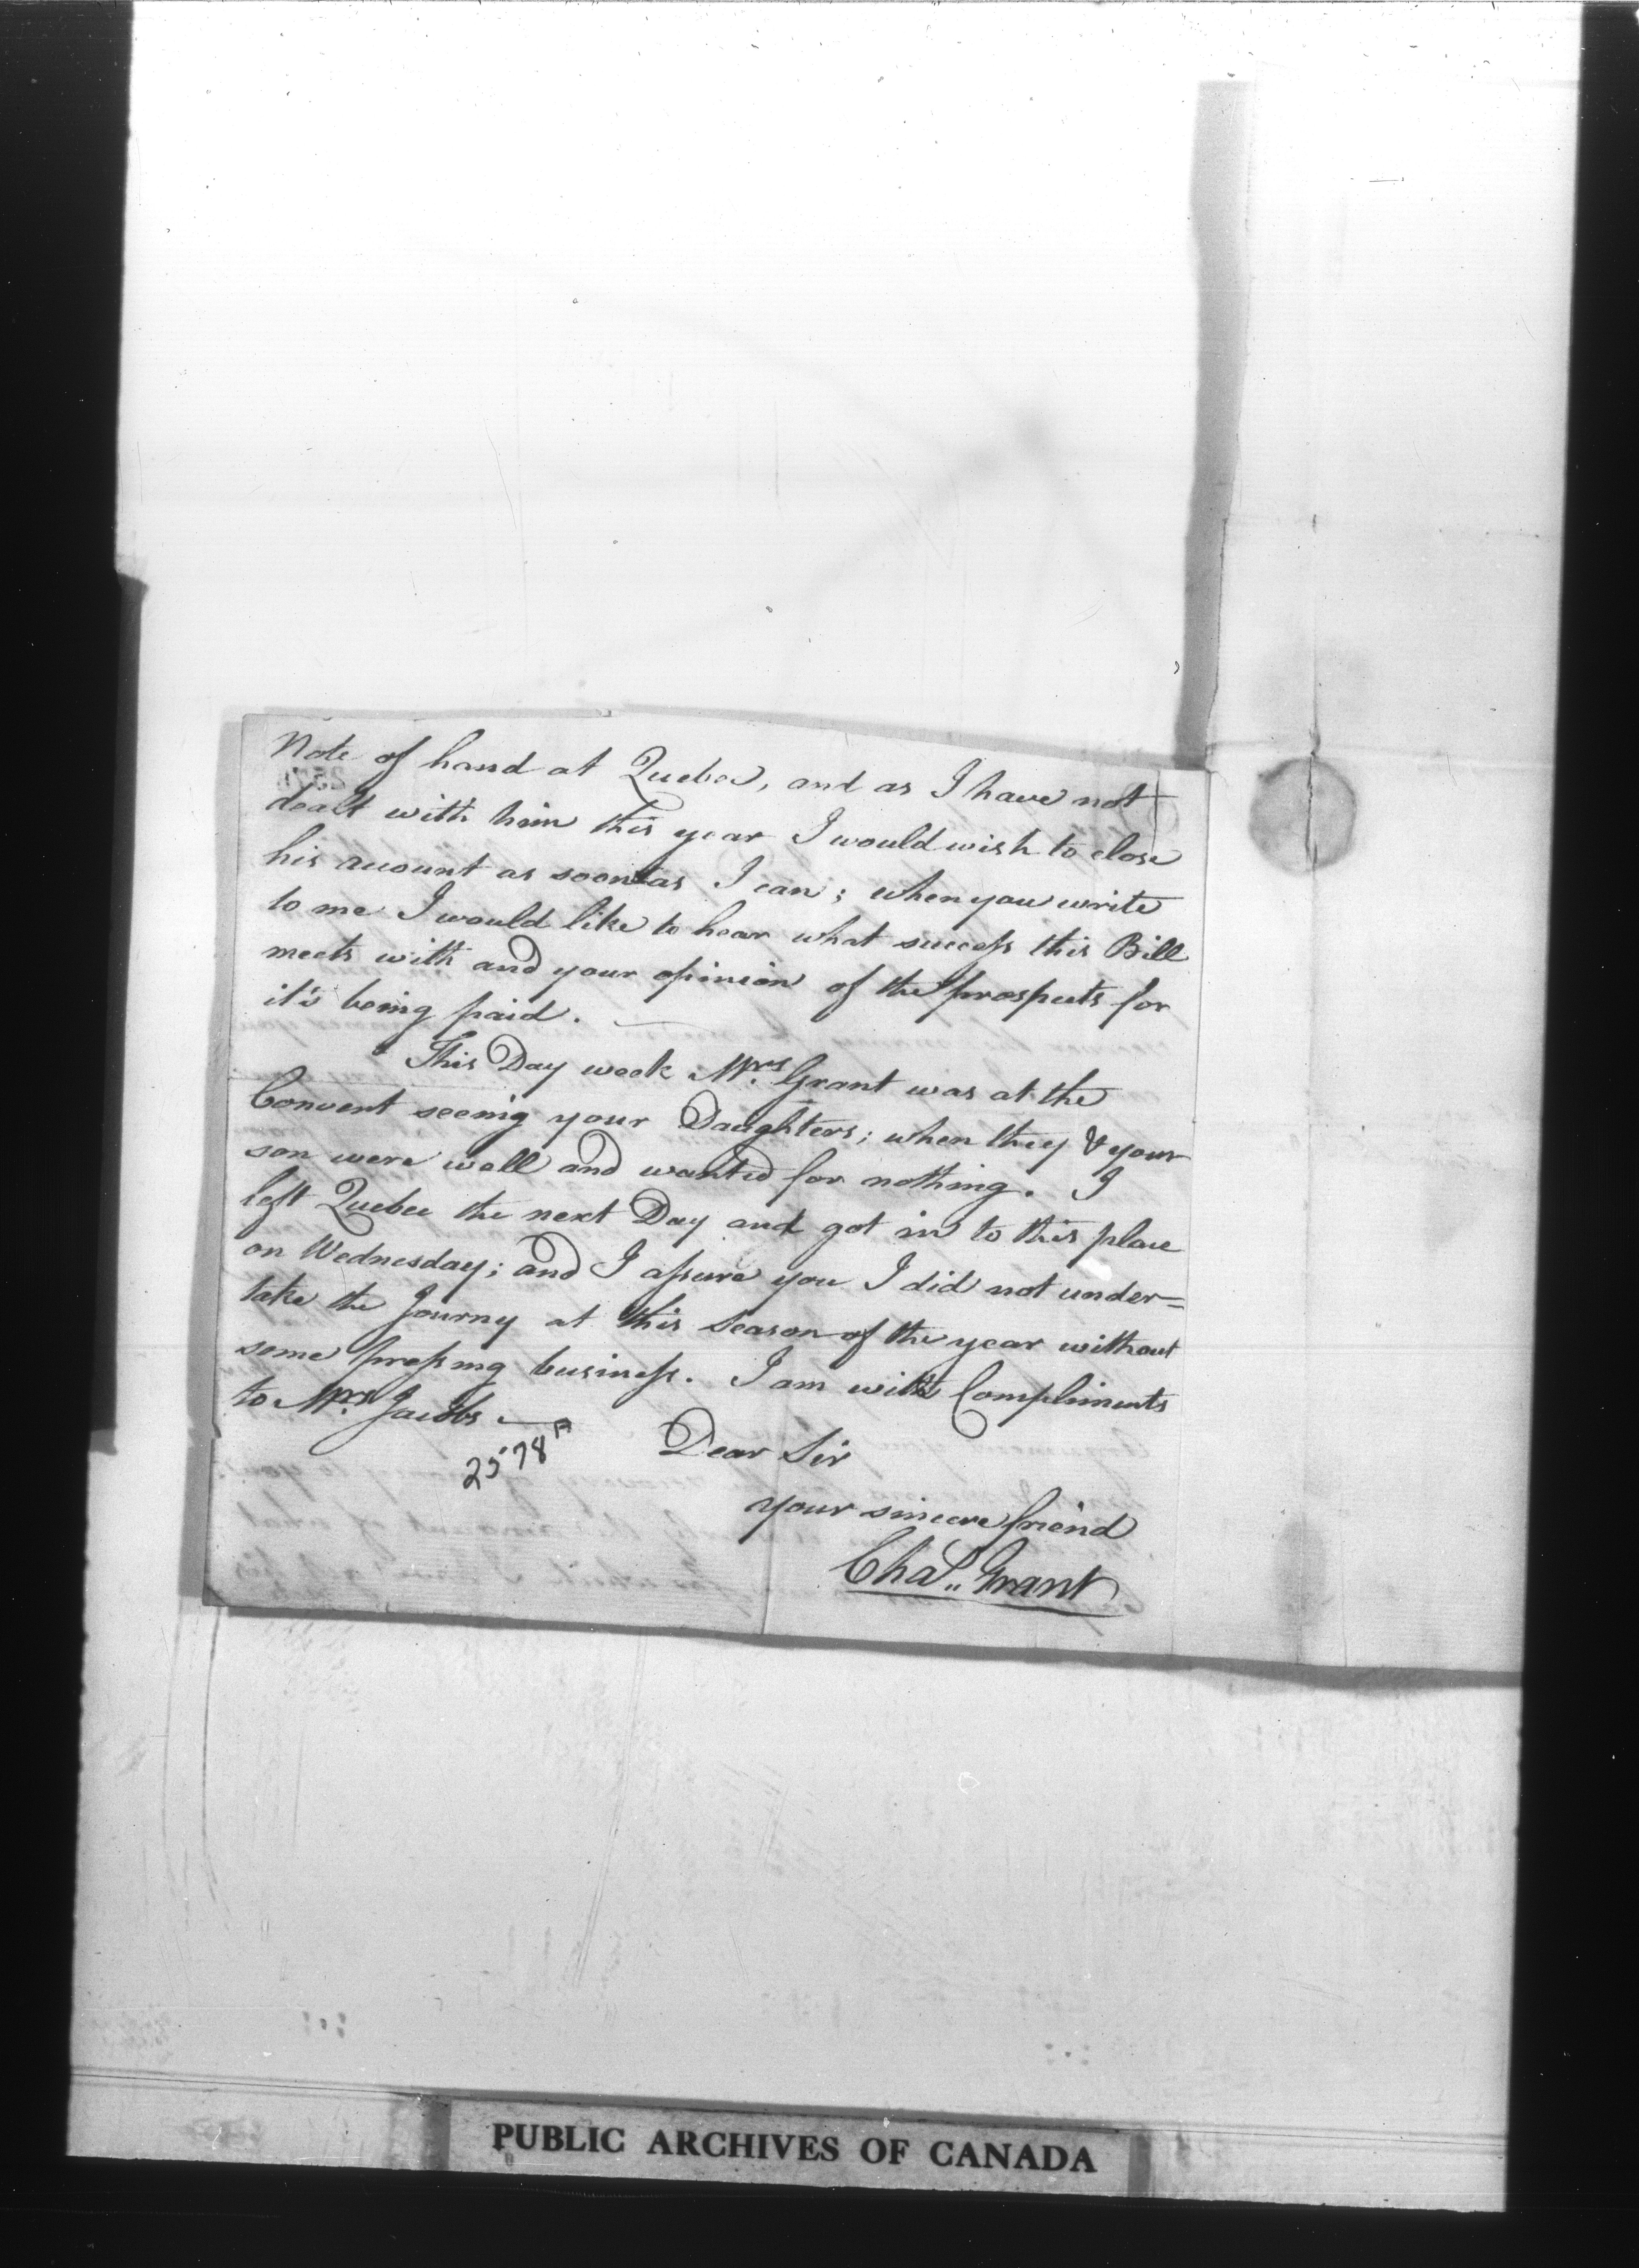 Note of hand at Quebec, and as I have not
dealt with him this year I would wish to close
his account as soon as I can; when you write
to me I would like to hear what success this Bill
meets with and your opinion of the prospects for
it's being paid. —
This Day week Mrs. Grant was at the
Convent seeing your Daughters; when they & your
son were well and wanted for nothing. I
left Quebec the next Day and got in to this place
on Wednesday; and I assure you I did not under=
take the Journy at this Season of the year without
some pressing business. I am with Compliments
to Mrs. Jacobs —
2578A
Dear Sir
your sincere friend
Chas. Grant
PUBLIC ARCHIVES OF CANADA